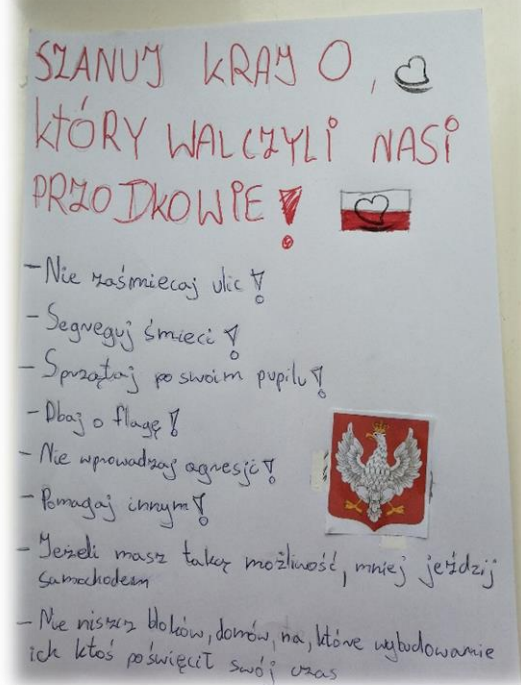 SZANUJ KRAJ O,
KTÓRY WALCZYLI NASI
PRZODKOWIE!
- Nie zaśmiecaj ulic!
- Segreguj śmieci!
- Sprzątaj po swoim pupilu!
- Dbaj o flagę!
- Nie wprowadzaj agresji!
- Pomagaj innym!
- Jeżeli masz taką możliwość, mniej jeździj
samochodem
- Nie niszcz bloków, domów, na, które wybudowanie
ich ktoś poświęcił swój czas